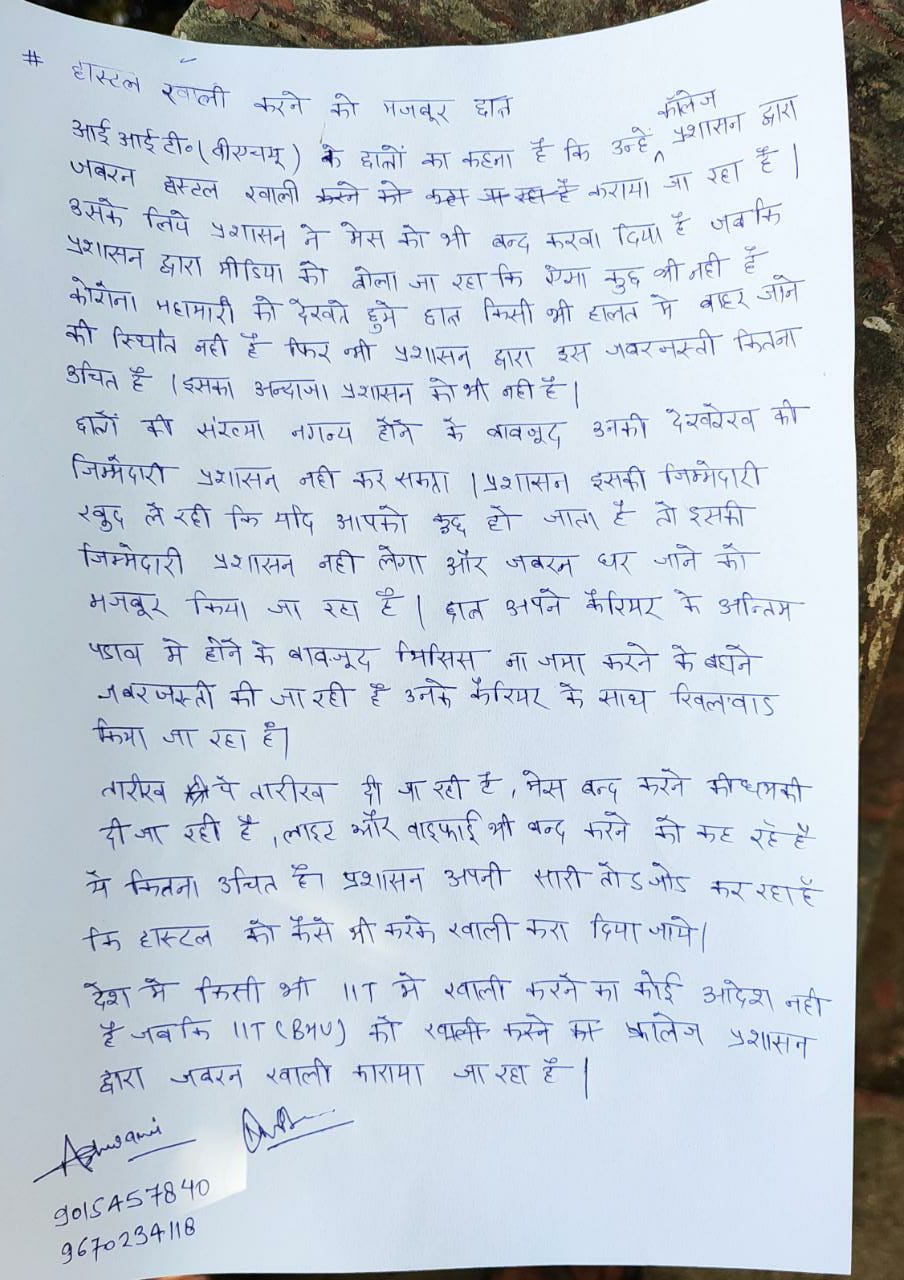 # हास्टल खाली करने को मजबूर छात्र
आई आई टी॰ (बीएचयू) के छात्रों का कहना है कि उन्हे कॉलेज प्रशासन द्वारा
जबरन हास्टल खाली करने को कहा जा रहा है कराया जा रहा है।
उसके लिये प्रशासन ने मेस को भी बन्द करवा दिया है जबकि
प्रशासन द्वारा मीडिया को बोला जा रहा कि ऐसा कुछ भी नही है
कोरोना महामारी को देखते हुये छात्र किसी भी हालत मे बाहर जाने
की स्थिति नही है फिर भी प्रशासन द्वारा इस जबरजस्ती कितना
उचित है । इसका अन्दाजा प्रशासन को भी नही है।
छात्रों की संख्या नगन्य होने के बावजूद उनकी देखरेख की
जिम्मेदारी प्रशासन नही कर सकता । प्रशासन इसकी जिम्मेदारी
खुद ले रही कि यदि आपको कुछ हो जाता है तो इसकी
जिम्मेदारी प्रशासन नही लेगा और जबरन घर जाने को
मजबूर किया जा रहा है। छात्र अपने कैरियर के अन्तिम
पडाव मे होने के बावजूद थिसिस ना जमा करने के बहाने
जबरजस्ती की जा रही है उनके कैरियर के साथ खिलवाड
किया जा रहा है।
तारीख पे तारीख दी जा रही है, मेस बन्द करने की धमकी
दी जा रही है, लाइट और वाइफाई भी बन्द करने को कह रहे है
ये कितना उचित है। प्रशासन अपनी सारी तोड जोड कर रहा है
कि हास्टल को कैसे भी करके खाली करा दिया जाये।
देश मे किसी भी IIT मे खाली करने का कोई आदेश नही
है जबकि IIT (BHU) को खाली करने का कालेज प्रशासन
द्वारा जबरन खाली काराया जा रहा है।
Ashwani
9015457840
9670234118